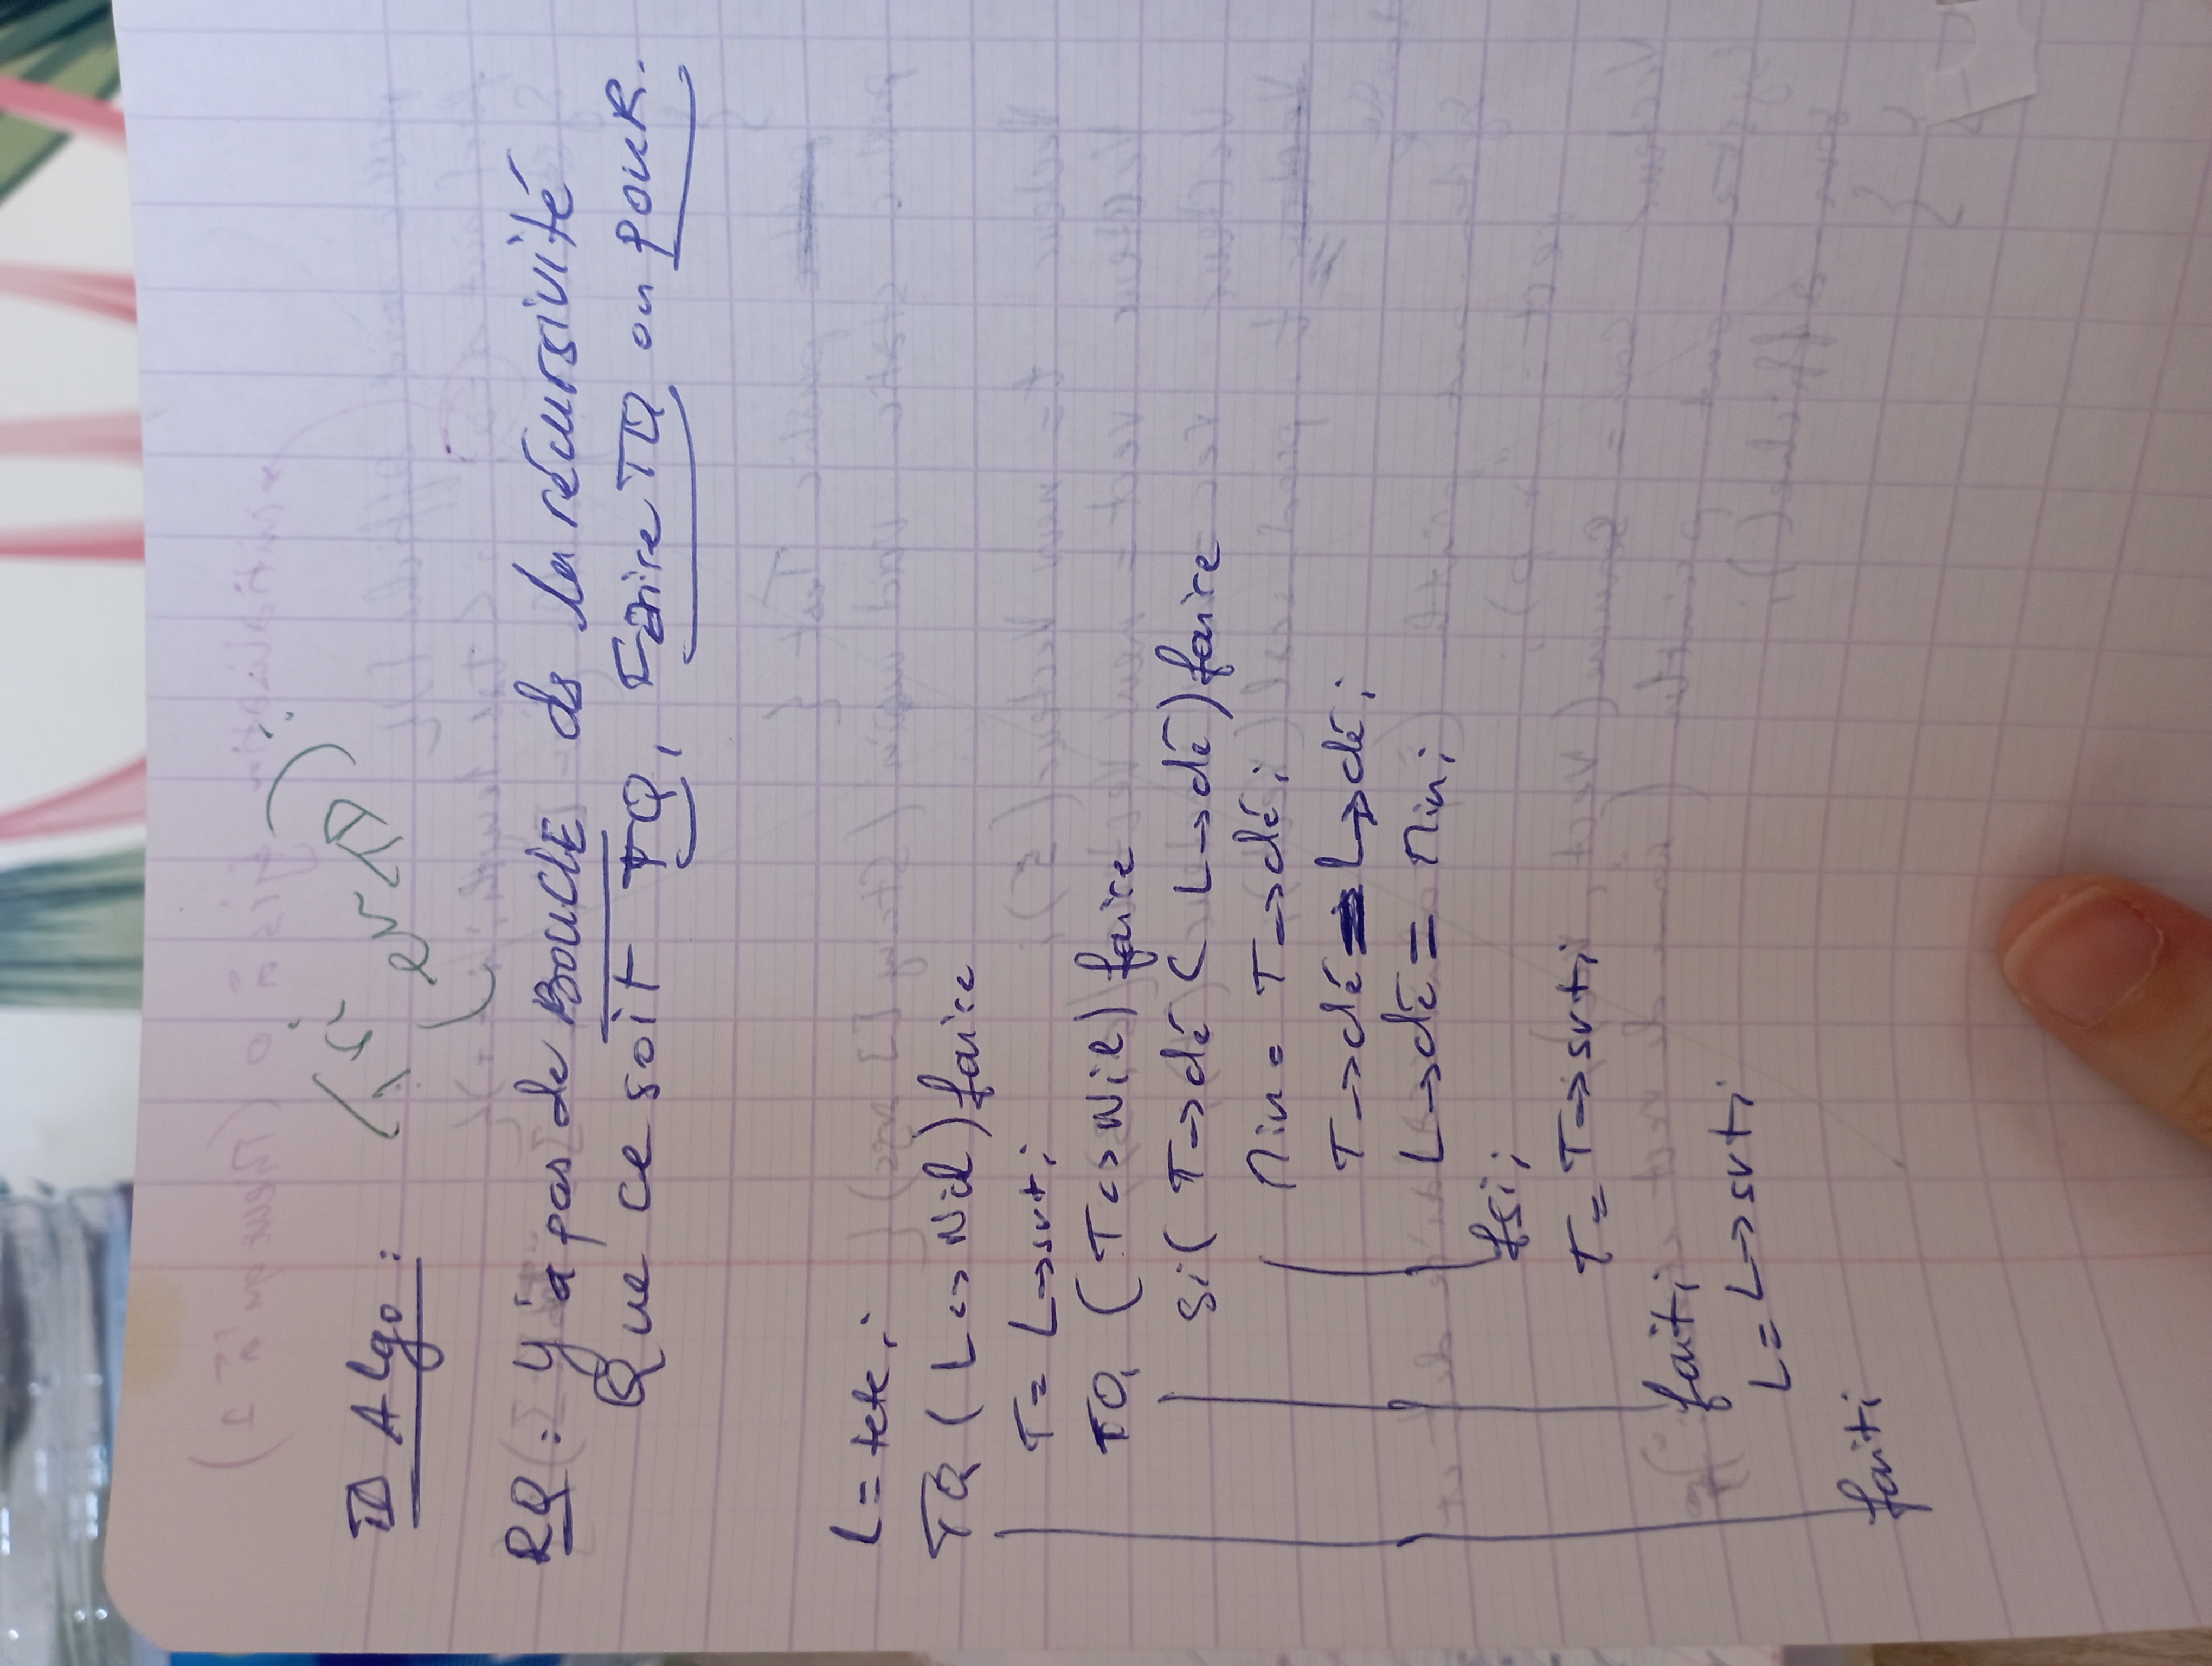 TD Algo :
Tri
(en TD) :
RQ : Y'a pas de BOUCLE ds la récursivité
Que ce soit TQ, Faire TQ ou POUR.
L = tete ;
TQ ( L <> Nil ) faire
T = L → svt ;
TQ ( T <> Nil ) faire
Si ( T → clé < L → clé ) faire
Min = T → clé ;
T → clé = L → clé ;
L → clé = Min ;
fsi ;
T = T → svt ;
fait ;
L = L → svt ;
fait ;